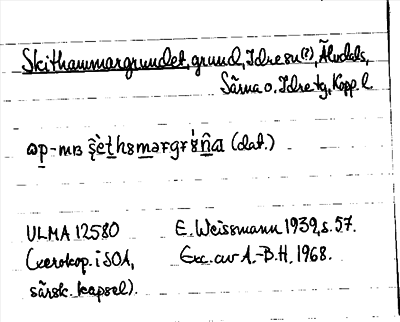 Skithammargrundet, grund, Idre sn(?), Älvdals,
Särna o. Idre tg, Kopp. l.
(dat.)
ULMA 12580 E. Weissmann 1939, s. 57.
(xerokop. i SOA, Exc. av A.-B.H. 1968.
särsk. kapsel).